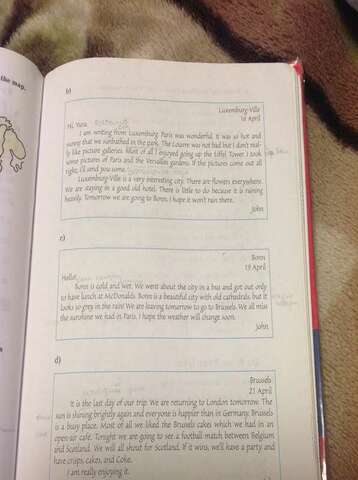 the map.
b)
Luxemburg-Ville
18 April
Hi, Yura
I am writing from Luxemburg. Paris was wonderful. It was so hot and
sunny that we sunbathed in the park. The Louvre was not bad but I don't real-
ly like picture galleries. Most of all I enjoyed going up the Eiffel Tower. I took
some pictures of Paris and the Versailles gardens. If the pictures come out all
right, I'll send you some.
Luxemburg-Ville is a very interesting city. There are flowers everywhere.
We are staying in a good old hotel. There is little to do because it is raining
heavily. Tomorrow we are going to Bonn. I hope it won't rain there.
John
c)
Bonn
19 April
Hello!
Bonn is cold and wet. We went about the city in a bus and got out only
to have lunch at McDonalds. Bonn is a beautiful city with old cathedrals, but it
looks so grey in the rain! We are leaving tomorrow to go to Brussels. We all miss
the sunshine we had in Paris. I hope the weather will change soon.
John
d)
Brussels
21 April
It is the last day of our trip. We are returning to London tomorrow. The
sun is shining brightly again and everyone is happier than in Germany. Brussels
is a busy place. Most of all we liked the Brussels cakes which we had in an
open-air cafe. Tonight we are going to see a football match between Belgium
and Scotland. We will all shout for Scotland. If it wins, we'll have a party and
have crisps, cakes, and Coke.
I am really enjoying it.